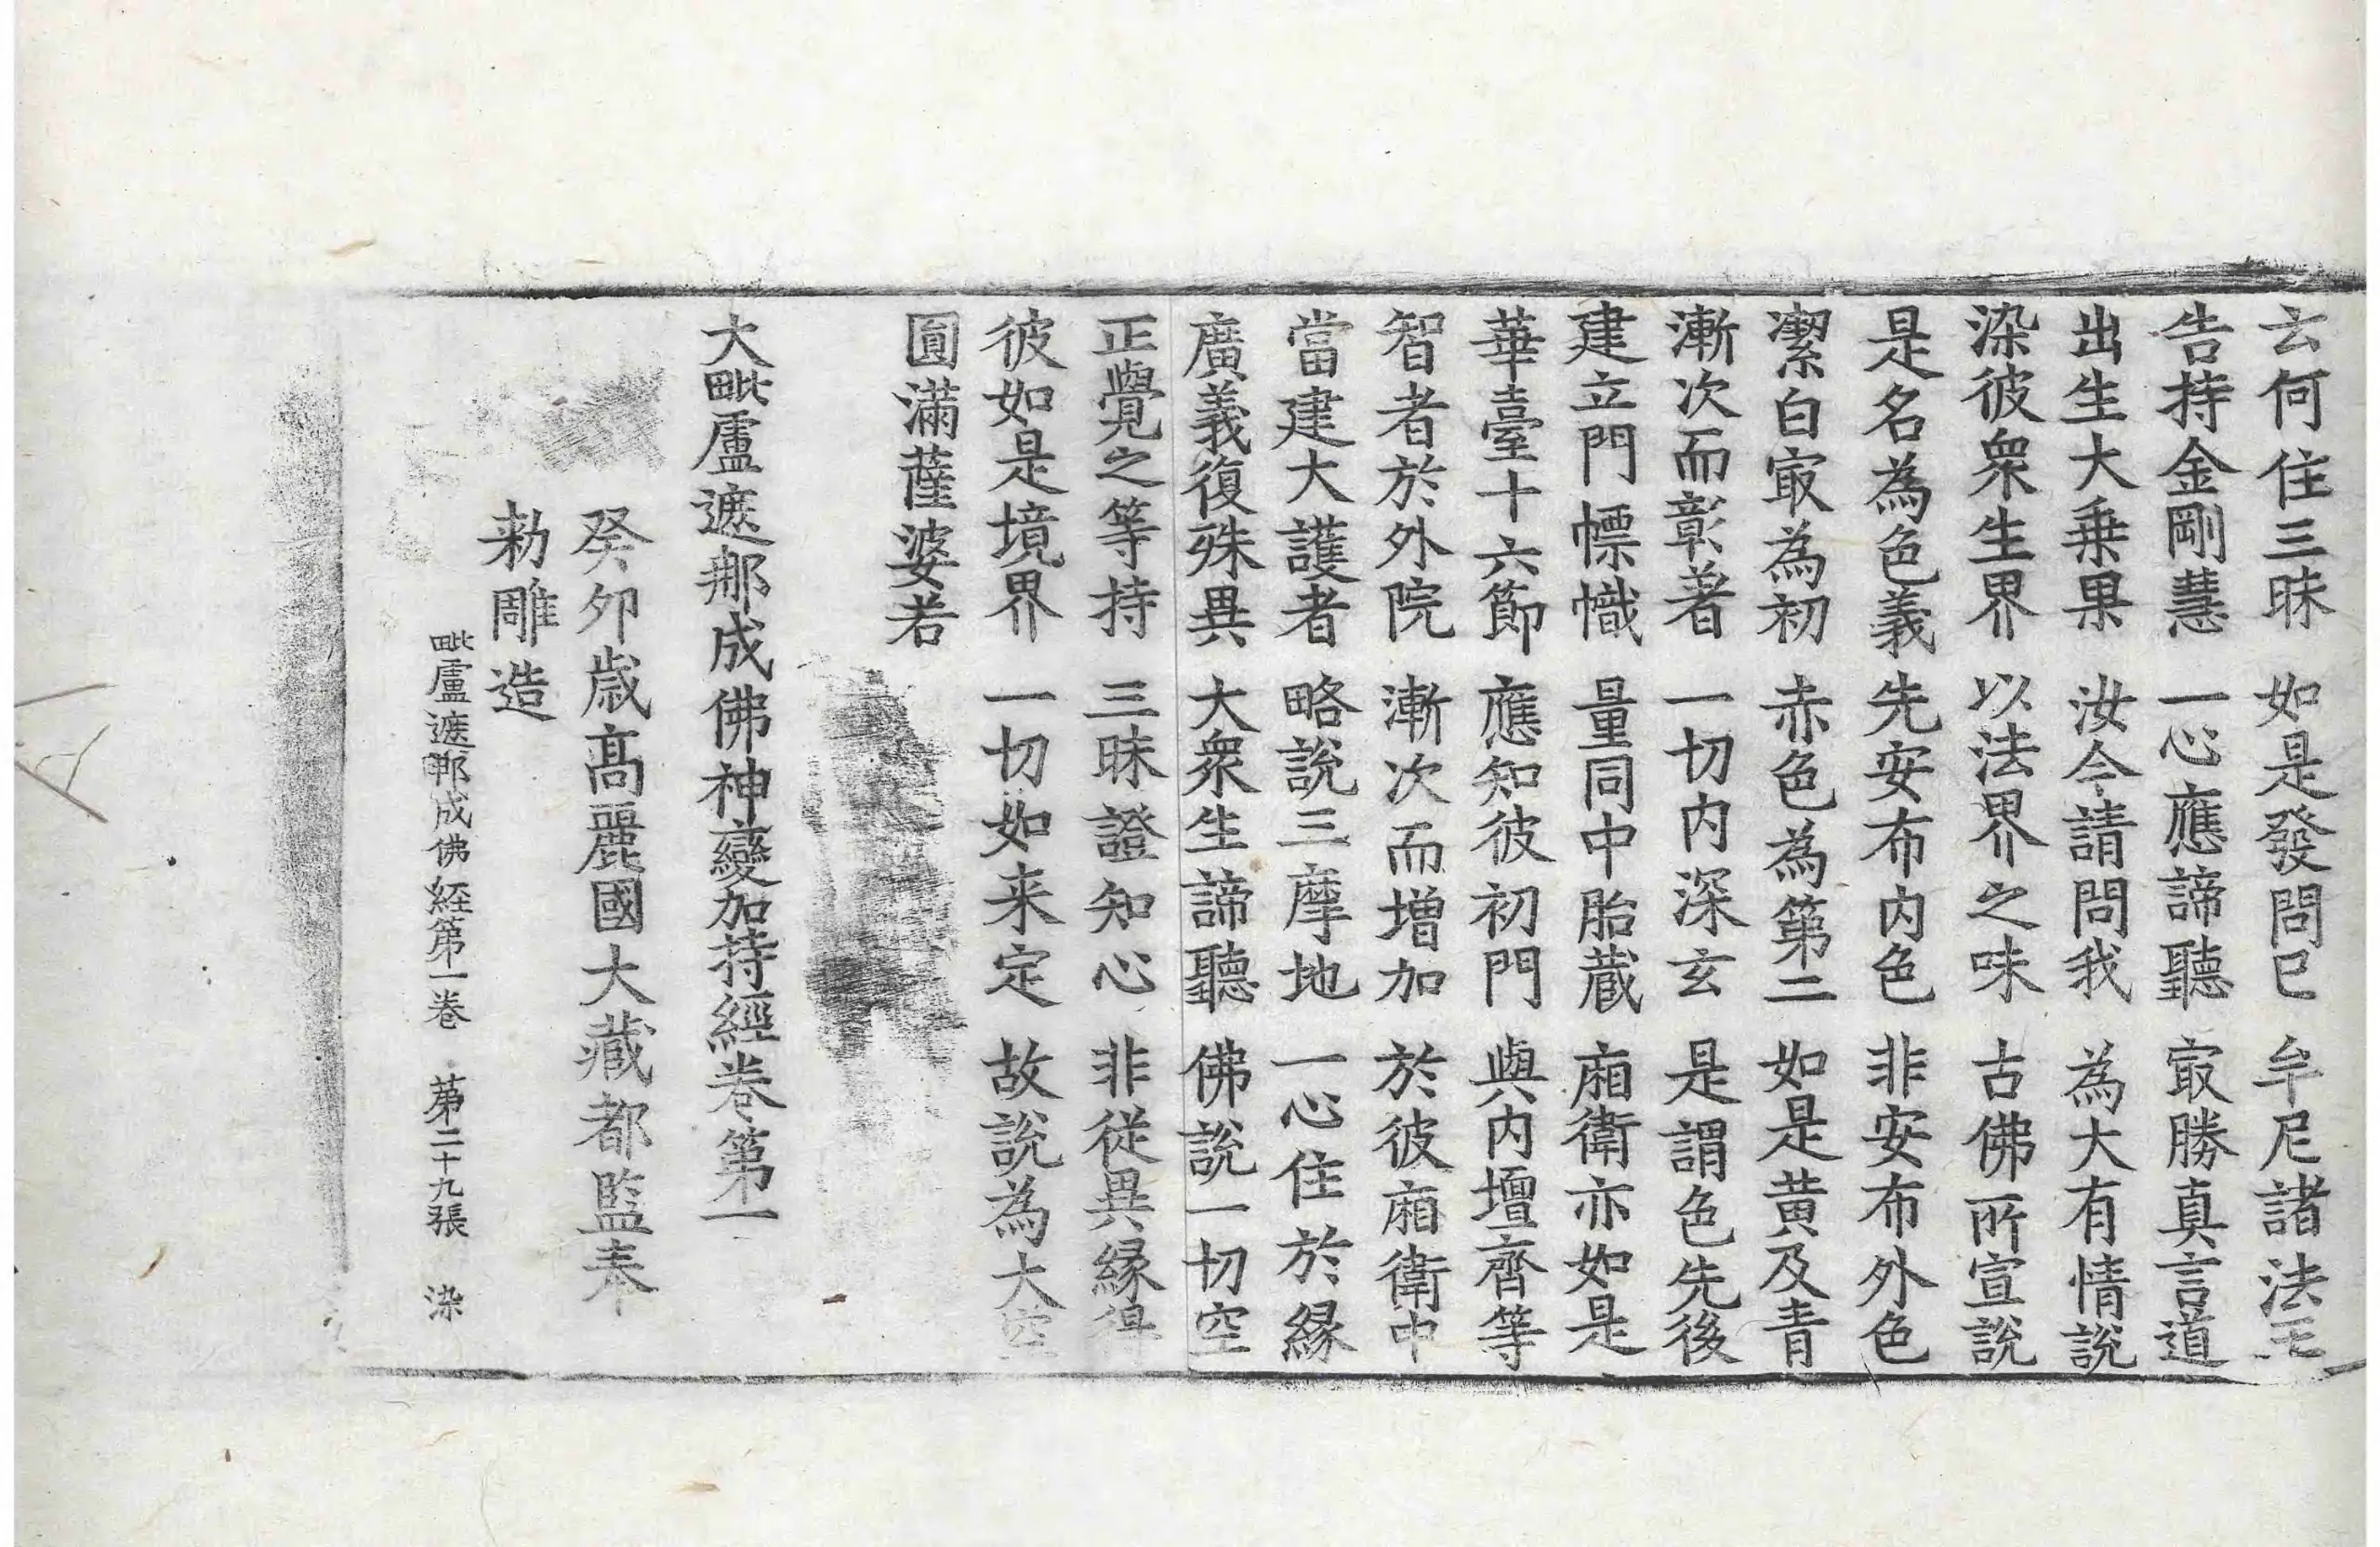 云何住三昧 如是發問已 牟尼諸法王
告持金剛慧 一心應諦聽 㝡勝真言道
出生大乗果 汝今請問我 為大有情說
染彼衆生界 以法界之味 古佛所宣說
是名為色義 先安布内色 非安布外色
潔白㝡為初 赤色為第二 如是黄及青
漸次而彰著 一切内深玄 是謂色先後
建立門幖幟 量同中胎蔵 廂衛亦如是
華臺十六節 應知彼初門 與内壇齊等
智者於外院 漸次而增加 於彼廂衛中
當建大護者 略說三摩地 一心住於緣
廣義復殊異 大衆生諦聽 佛說一切空
正覺之等持 三昧證知心 非從異緣得
彼如是境界 一切如来定 故說為大空
圎滿薩婆若
大毗盧遮那成佛神變加持經卷第一
癸卯歳高麗國大藏都監奉
勑雕造
毗盧遮那成佛経第一卷 第二十九張 染